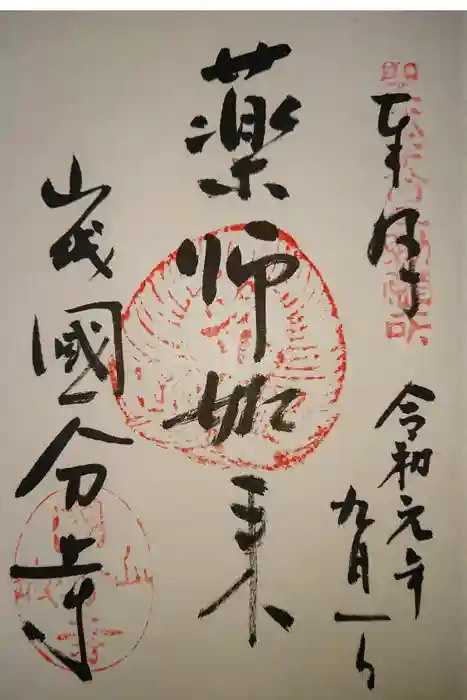 奉拝
令和元年
九月一日
薬師如来
國分寺